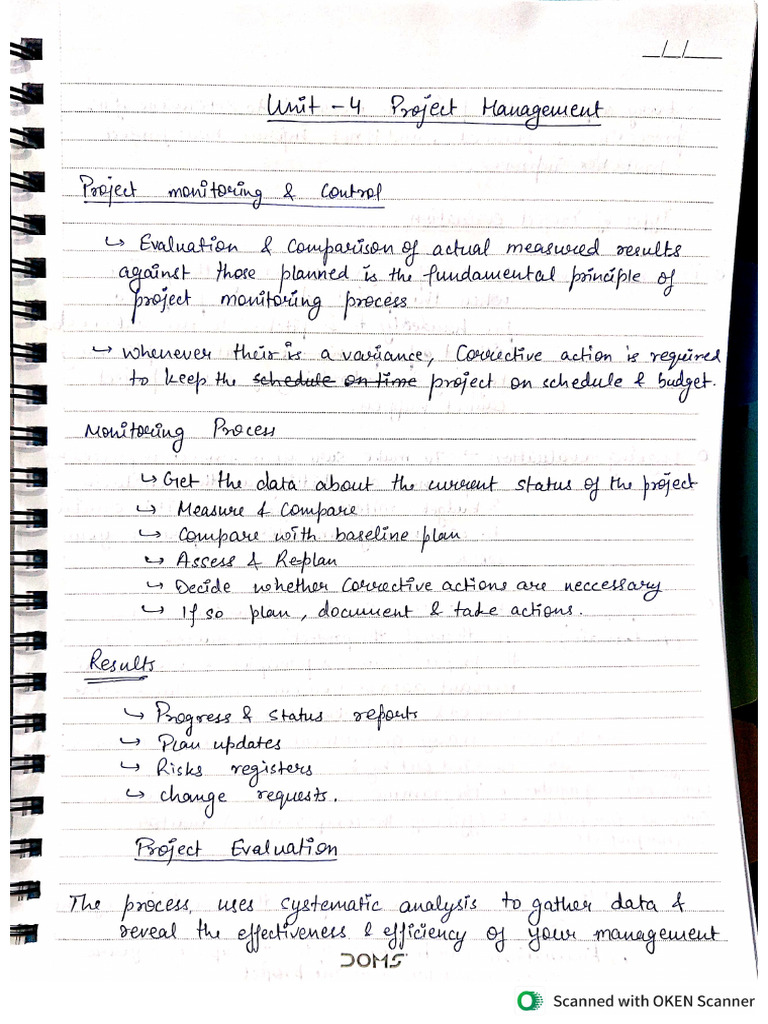 _/_/__
Unit - 4 Project Management
Project monitoring & control
↳ Evaluation & comparison of actual measured results
against those planned is the fundamental principle of
project monitoring process
↳ whenever their is a variance, corrective action is required
to keep the schedule on time project on schedule & budget.
Monitoring Process
↳ Get the data about the current status of the project
↳ Measure & Compare
↳ Compare with baseline plan
↳ Assess & Re-plan
↳ Decide whether corrective actions are neccessary
↳ If so plan, document & take actions.
Results
↳ Progress & status reports
↳ Plan updates
↳ Risks registers
↳ change requests.
Project Evaluation
The process, uses systematic analysis to gather data &
reveal the effectiveness & efficiency of your management
DOMS
Scanned with OKEN Scanner